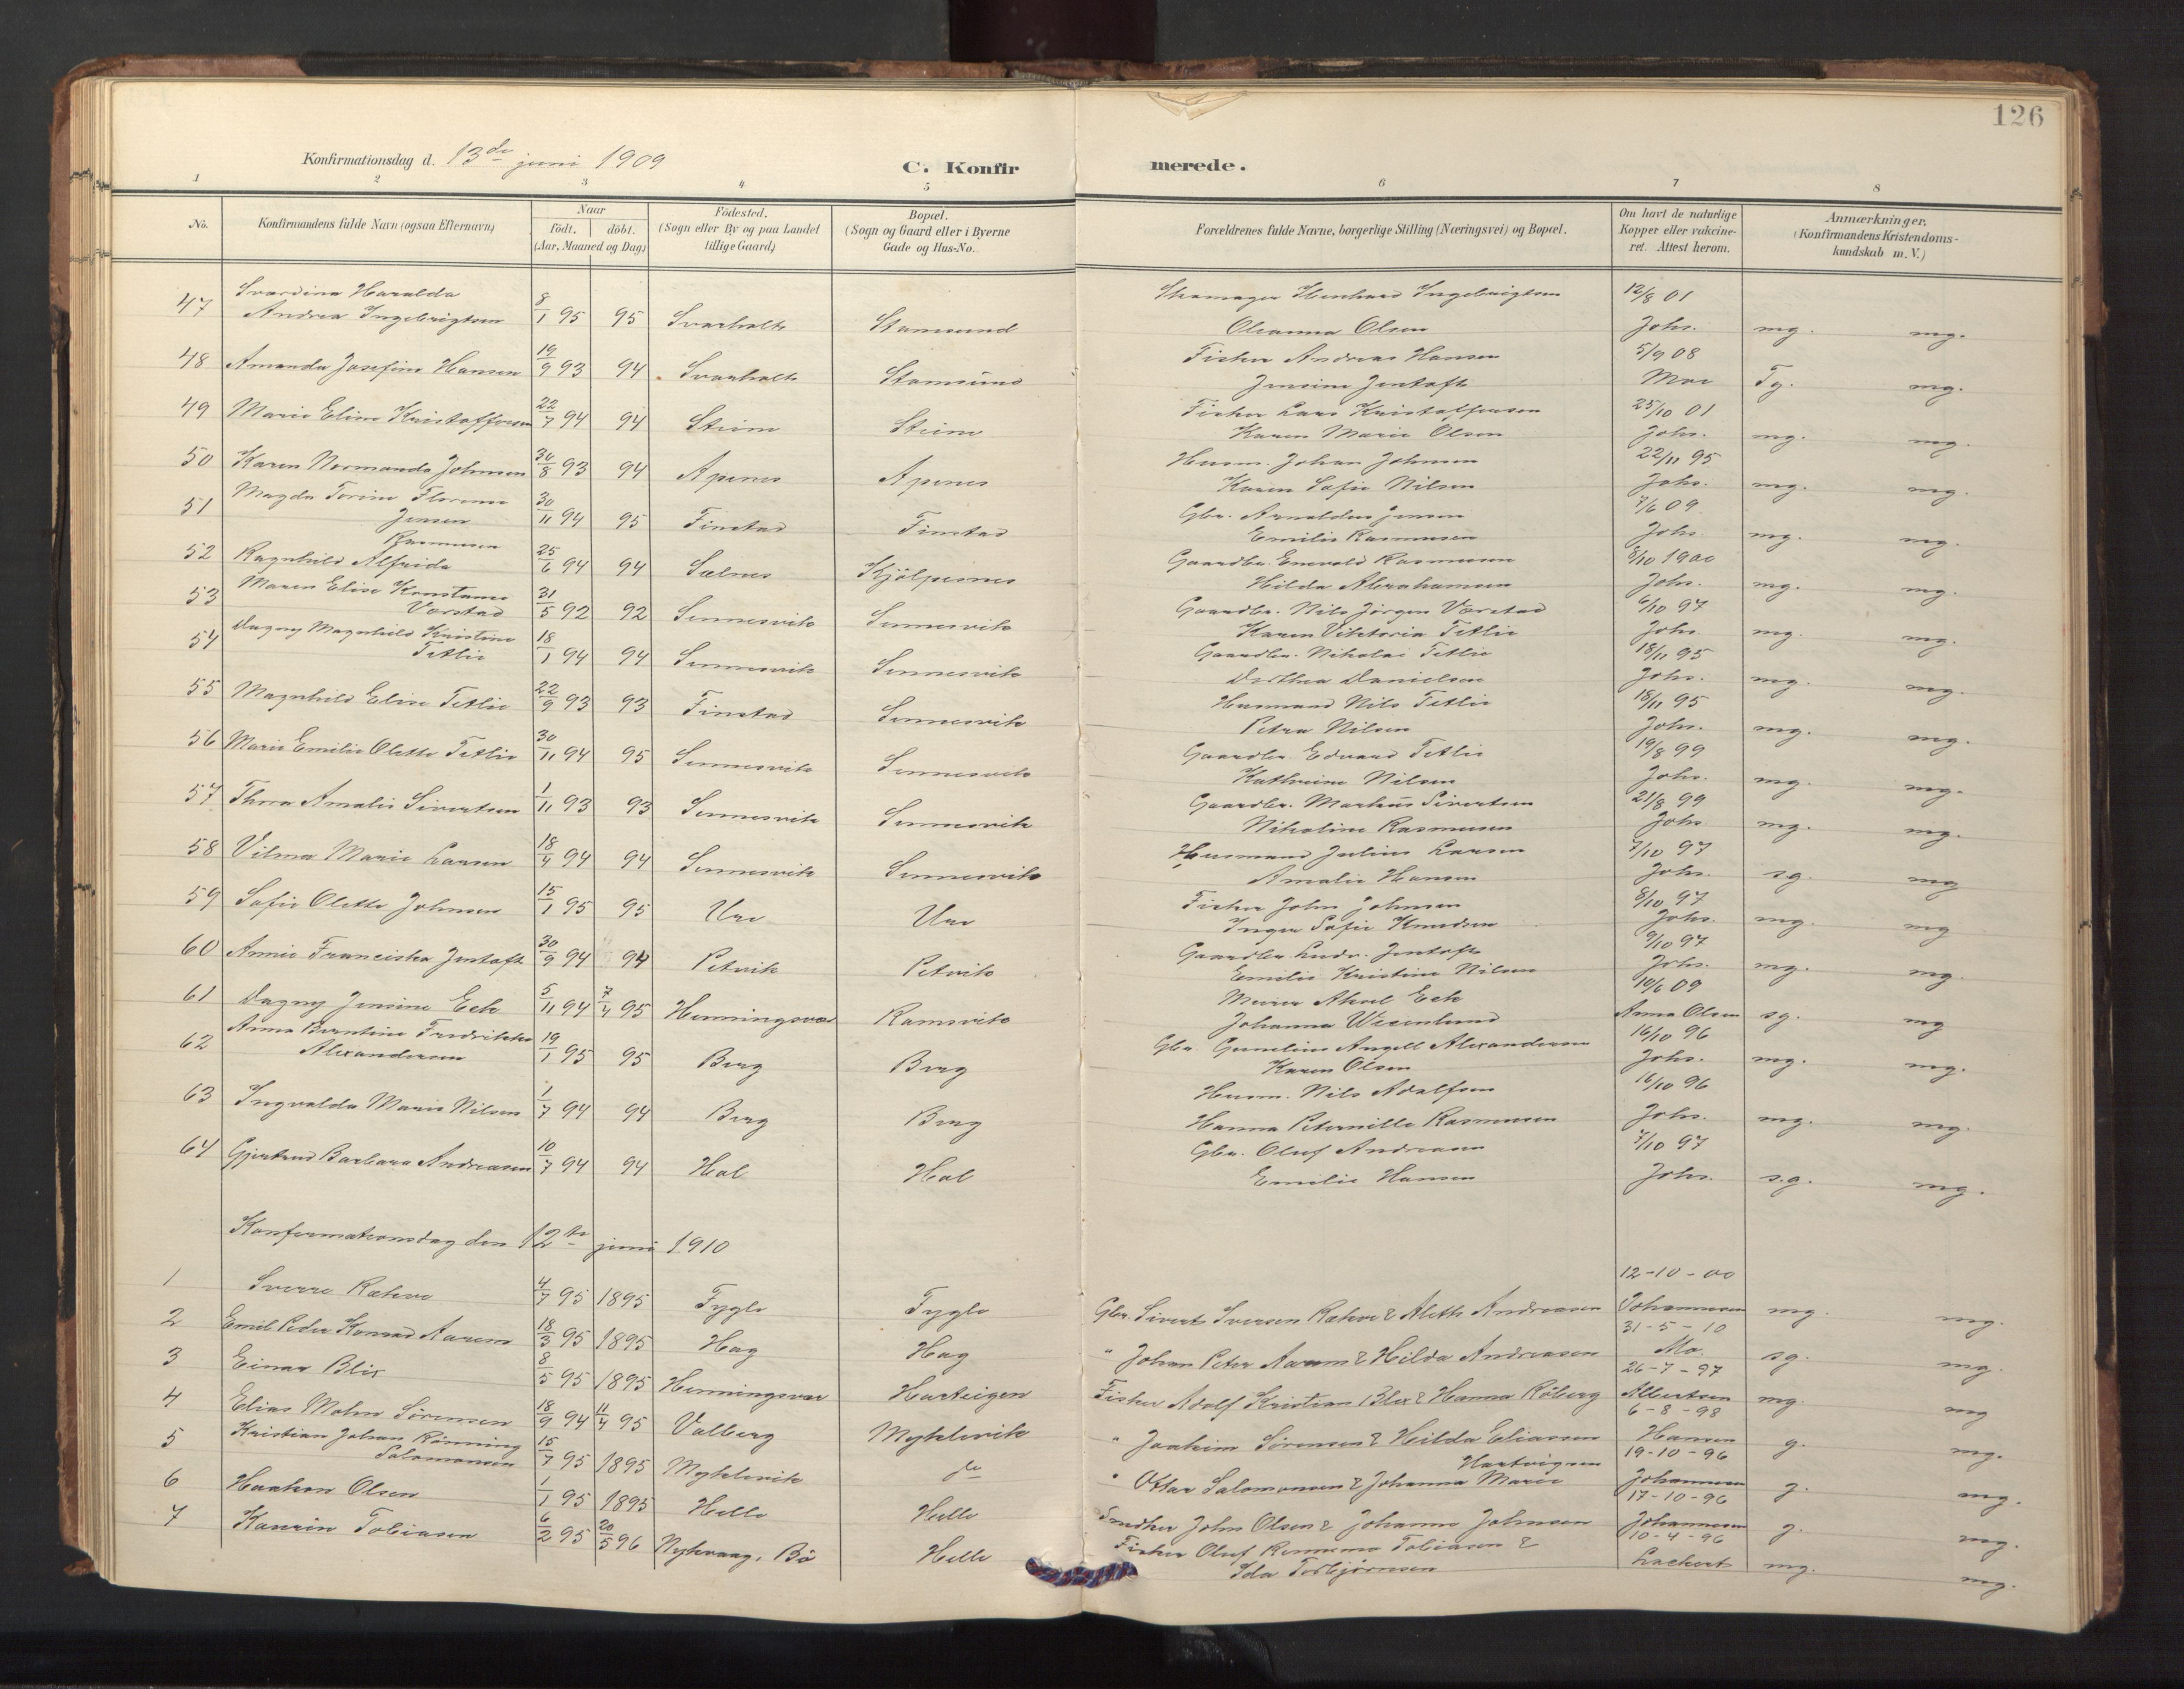 126
Konfirmationsdag d. 13de juni 1909
C. Konfirmerede.
1 2 3 4 5 6 7 8
No. Konfirmandens fulde Navn (ogsaa Efternavn) Naar födt. döbt. (Aar, Maaned og Dag) Födested. (Sogn eller By og paa Landet tillige Gaard) Bopæl. (Sogn og Gaard eller i Byerne Gade og Hus-No. Forældrenes fulde Navne, borgerlige Stilling (Næringsvei) og Bopæl. Om havt de naturlige Kopper eller vakcineret. Attest herom. Anmærkninger, (Konfirmandens Kristendomskundskab m. V.)
47 Svardina Haralda Andrea Ingebrigtsen 8/1 95 95 Svarholt Stamsund Ingebrigtsen 12/8 01
Oleanna Olsen Johs. mg. mg.
48 Amanda Josefine Hansen 19/9 93 94 Svarholt Stamsund Fisker Andreas Hansen 5/9 08
Jensine Jentoft Moe Tg. mg.
49 Marie Eline Kristoffersen 22/7 94 94 Steine Steine Fisker Lars Kristoffersen 25/10 01
Karen Marie Olsen Johs. mg. mg.
50 Karen Normanda Johnsen 30/8 93 94 Apenes Apenes Husm. Johan Johnsen 22/11 95
Karen Sofie Nilsen Johs. mg. mg.
51 Magda Torine Florense Jensen 30/11 94 95 Finstad Finstad Gbr. Arnoldus Jensen 7/6 09
Emilie Rasmusen Johs. mg. mg.
52 Ragnhild Alfrida Rasmusen 25/6 94 94 Sælnes Kjölpesnes Gaardbr. Enevold Rasmusen 8/10 1900
Hilda Abrahamsen Johs. mg. mg.
53 Maren Elise Konstanse Værstad 31/5 92 92 Sennesvik Sennesvik Gaardbr. Nils Jörgen Værstad 6/10 97
Karen Viktoria Tetlie Johs. mg. mg.
54 Dagny Magnhild Kristine Tetlie 18/1 94 94 Sennesvik Sennesvik Gaardbr. Nikolai Tetlie 18/11 95
Dorthea Danielsen Johs. mg. mg.
55 Magnhild Elise Tetlie 22/9 93 93 Finstad Sennesvik Husmand Nils Tetlie 18/11 95
Petra Nilsen Johs. mg. mg.
56 Marie Emilie Olette Tetlie 30/11 94 95 Sennesvik Sennesvik Gaardbr. Edvard Tetlie 19/8 99
Kathrine Nilsen Johs. mg. mg.
57 Thora Amalie Sivertsen 1/11 93 93 Sennesvik Sennesvik Gaardbr. Markus Sivertsen 21/8 99
Nikoline Rasmusen Johs. mg. mg.
58 Vilma Marie Larsen 18/4 94 94 Sennesvik Sennesvik Husmand Julius Larsen 7/10 97
Amalie Hansen Johs. s.g. mg
59 Sofie Olette Johnsen 15/1 95 95 Ure Ure Fisker John Johnsen 8/10 97
Inger Sofie Knudsen Johs. mg. mg
60 Annie Franciska Jentoft 30/9 94 94 Petvik Petvik Gaardbr. Ludv. Jentoft 9/10 97
Emilie Kristine Nilsen Johs. mg. mg.
61 Dagny Jensine Eek 5/11 94 7/4 95 Henningsvær Ramsvik Murer Aksel Eek 10/6 09
Johanna Wesenlund Anna Olsen sg. mg
62 Anna Berntine Fredrikke Alexandersen 19/1 95 95 Berg Berg Gbr. Angell Alexandersen 16/10 96
Karen Olsen Johs. mg. mg.
63 Ingvalda Marie Nilsen 1/7 94 94 Berg Berg Husm. Nils Adolfsen 16/10 96
Hanna Peternille Rasmusen Johs. mg. mg.
64 Gjertrud Barbara Andreasen 10/7 94 94 Hol Hol Gbr. Oluf Andreasen 7/10 97
Emilie Hansen Johs. s.g. mg.
Konfirmationsdag den 12te juni 1910
1 Sverre Rækve 4/7 95 1895 Fygle Fygle Gbr. Sivert Iversen Rækve & Aleth Andreasen 12-10-00 Johannesen mg. mg.
2 Emil Peder Konrad Aarem 18/3 95 1895 Hag Hag " Johan Peter Aarem & Hilda Andreasen 31-5-10 Mo. sg. mg.
3 Einar Blix 8/5 95 1895 Henningsvær Harteigen Fisker Adolf Kristian Blix & Hanna Röberg 26-7-97 Albertsen mg. mg
4 Elias Mohn Sörensen 18/9 94 11/4 95 Valberg Myklevik " Joakim Sörensen & Hilda Eliassen 6-8-98 Hansen g. mg.
5 Kristian Johan Rönning Salomonsen 15/7 95 1895 Myklevik do " Ottar Salomonsen & Johanna Marie Hartvigsen 19-10-96 Johannesen g. mg.
6 Haakon Olsen 1/1 95 1895 Helle Helle John Olsen & Johanna Johnsen 17-10-96 Johannesen g. mg.
7 Kaurin Tobiasen 6/2 95 20/5 96 Nykvaag, Bö Helle Fisker Oluf Tobiasen & 10-4-96
Ida Torbjörnsen mg. mg.